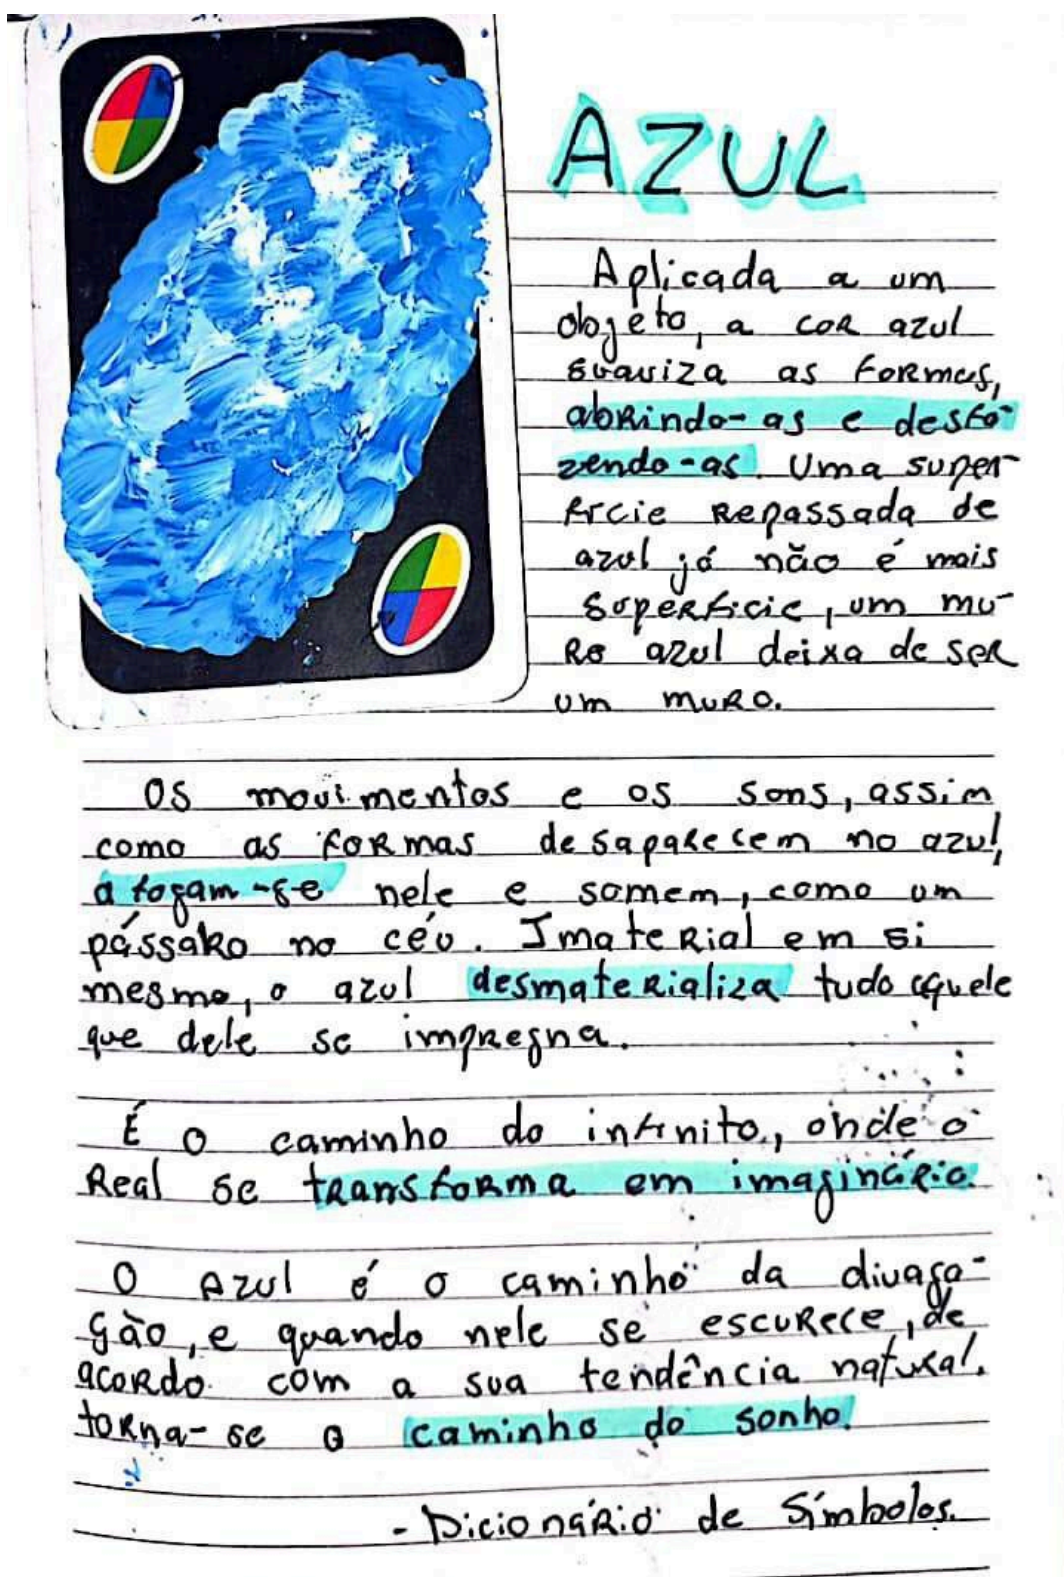 AZUL
Aplicada a um
objeto, a cor azul
suaviza as formas,
abrindo-as e desfa-
zendo-as. Uma super-
fície repassada de
azul já não é mais
superfície, um mu-
ro azul deixa de ser
um muro.
Os movimentos e os sons, assim
como as formas desaparecem no azul,
afogam-se nele e somem, como um
pássaro no céu. Imaterial em si
mesmo, o azul desmaterializa tudo aquele
que dele se impregna.
É o caminho do infinito, onde o
Real se transforma em imaginário.
O Azul é o caminho da divaga-
ção, e quando nele se escurece, de
acordo com a sua tendência natural.
torna-se o caminho do sonho.
- Dicionário de Símbolos.